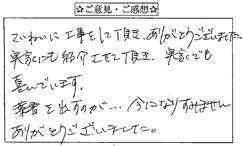 ☆ご意見・ご感想☆
ていねいに工事をして頂き、ありがとうございました。
実家にも紹介させて頂き、実家でも
喜んでいます。
葉書を出すのが…今になりすみません
ありがとうございました。